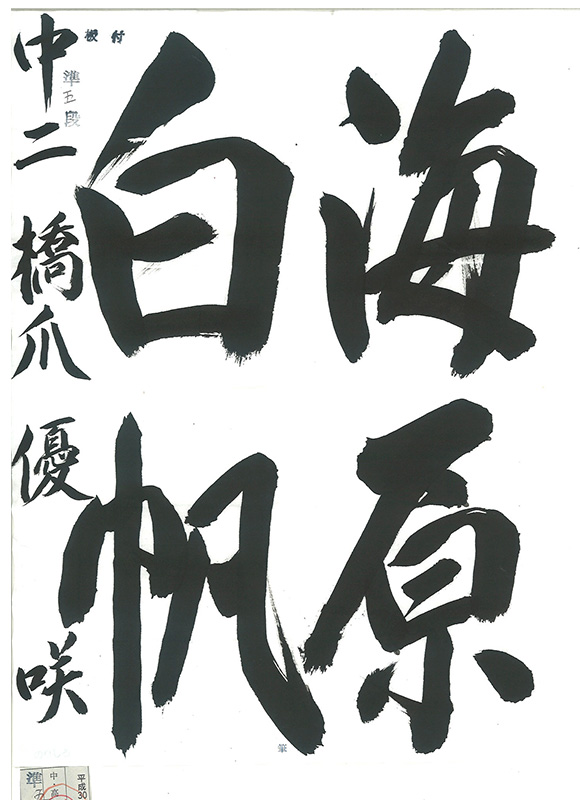 海原
白帆
筆
準五段
中二 橋爪 優咲
平成30
中・
準